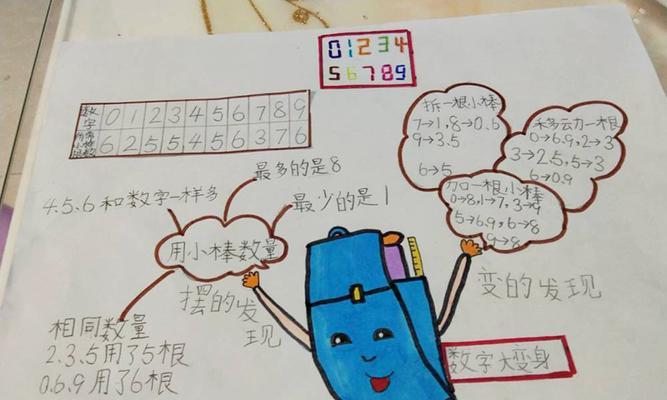 01234
56789
数字 0 1 2 3 4 5 6 7 8 9
6 2 5 5 4 5 6 3 7 6
最多的是8
4.5.6和数字一样多
最少的是1
用小棒数量
摆的发
现
相同数量
2.3.5用了5根
0.6.9用了6根
拆一根小棒
7→1,8→0.6
9→3.5
6→5
移动一根
0→6.9,2→3
3→2.5,5→3
6→0.9
加一根小棒
0→8,1→7,3→9
5→6.9,6→8
9→8
变的发现
数字大变身